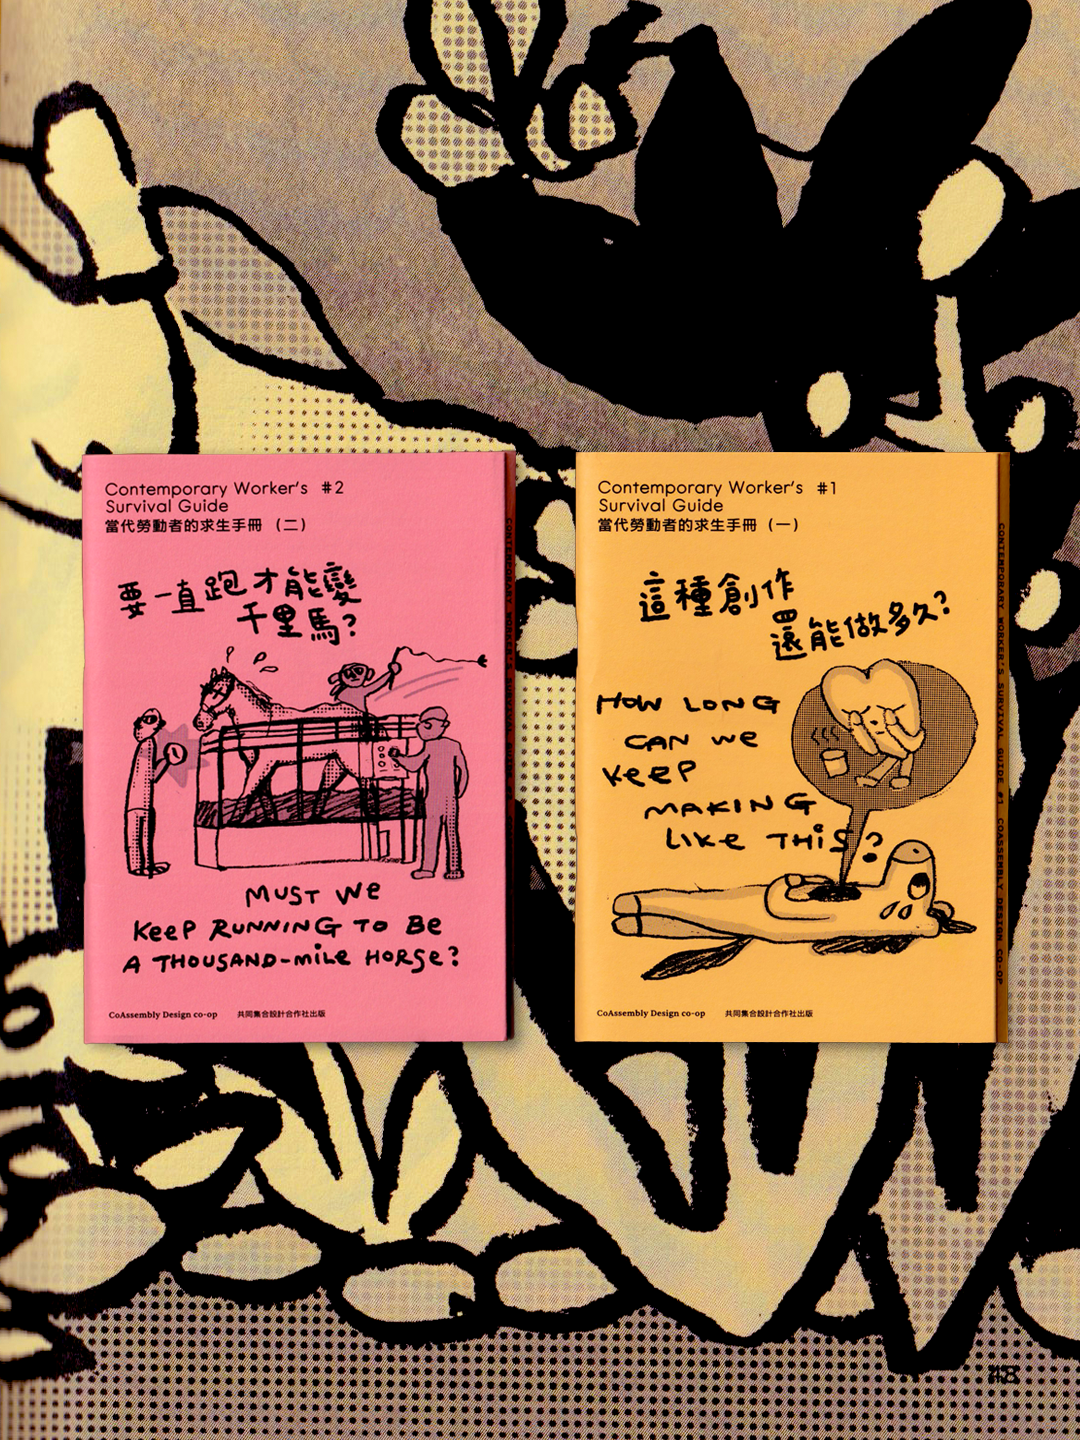 Contemporary Worker's #2
Survival Guide
當代勞動者的求生手冊（二）
要一直跑才能變
千里馬?
MUST WE
KEEP RUNNING TO BE
A THOUSAND-MILE HORSE?
CoAssembly Design co-op 共同集合設計合作社出版
CONTEMPORARY WORKER'S SURVIVAL GUIDE
Contemporary Worker's #1
Survival Guide
當代勞動者的求生手冊（一）
這種創作
還能做多久?
HOW LONG
CAN WE
KEEP
MAKING
LIKE THIS?
CoAssembly Design co-op 共同集合設計合作社出版
CONTEMPORARY WORKER'S SURVIVAL GUIDE #1 COASSEMBLY DESIGN CO-OP